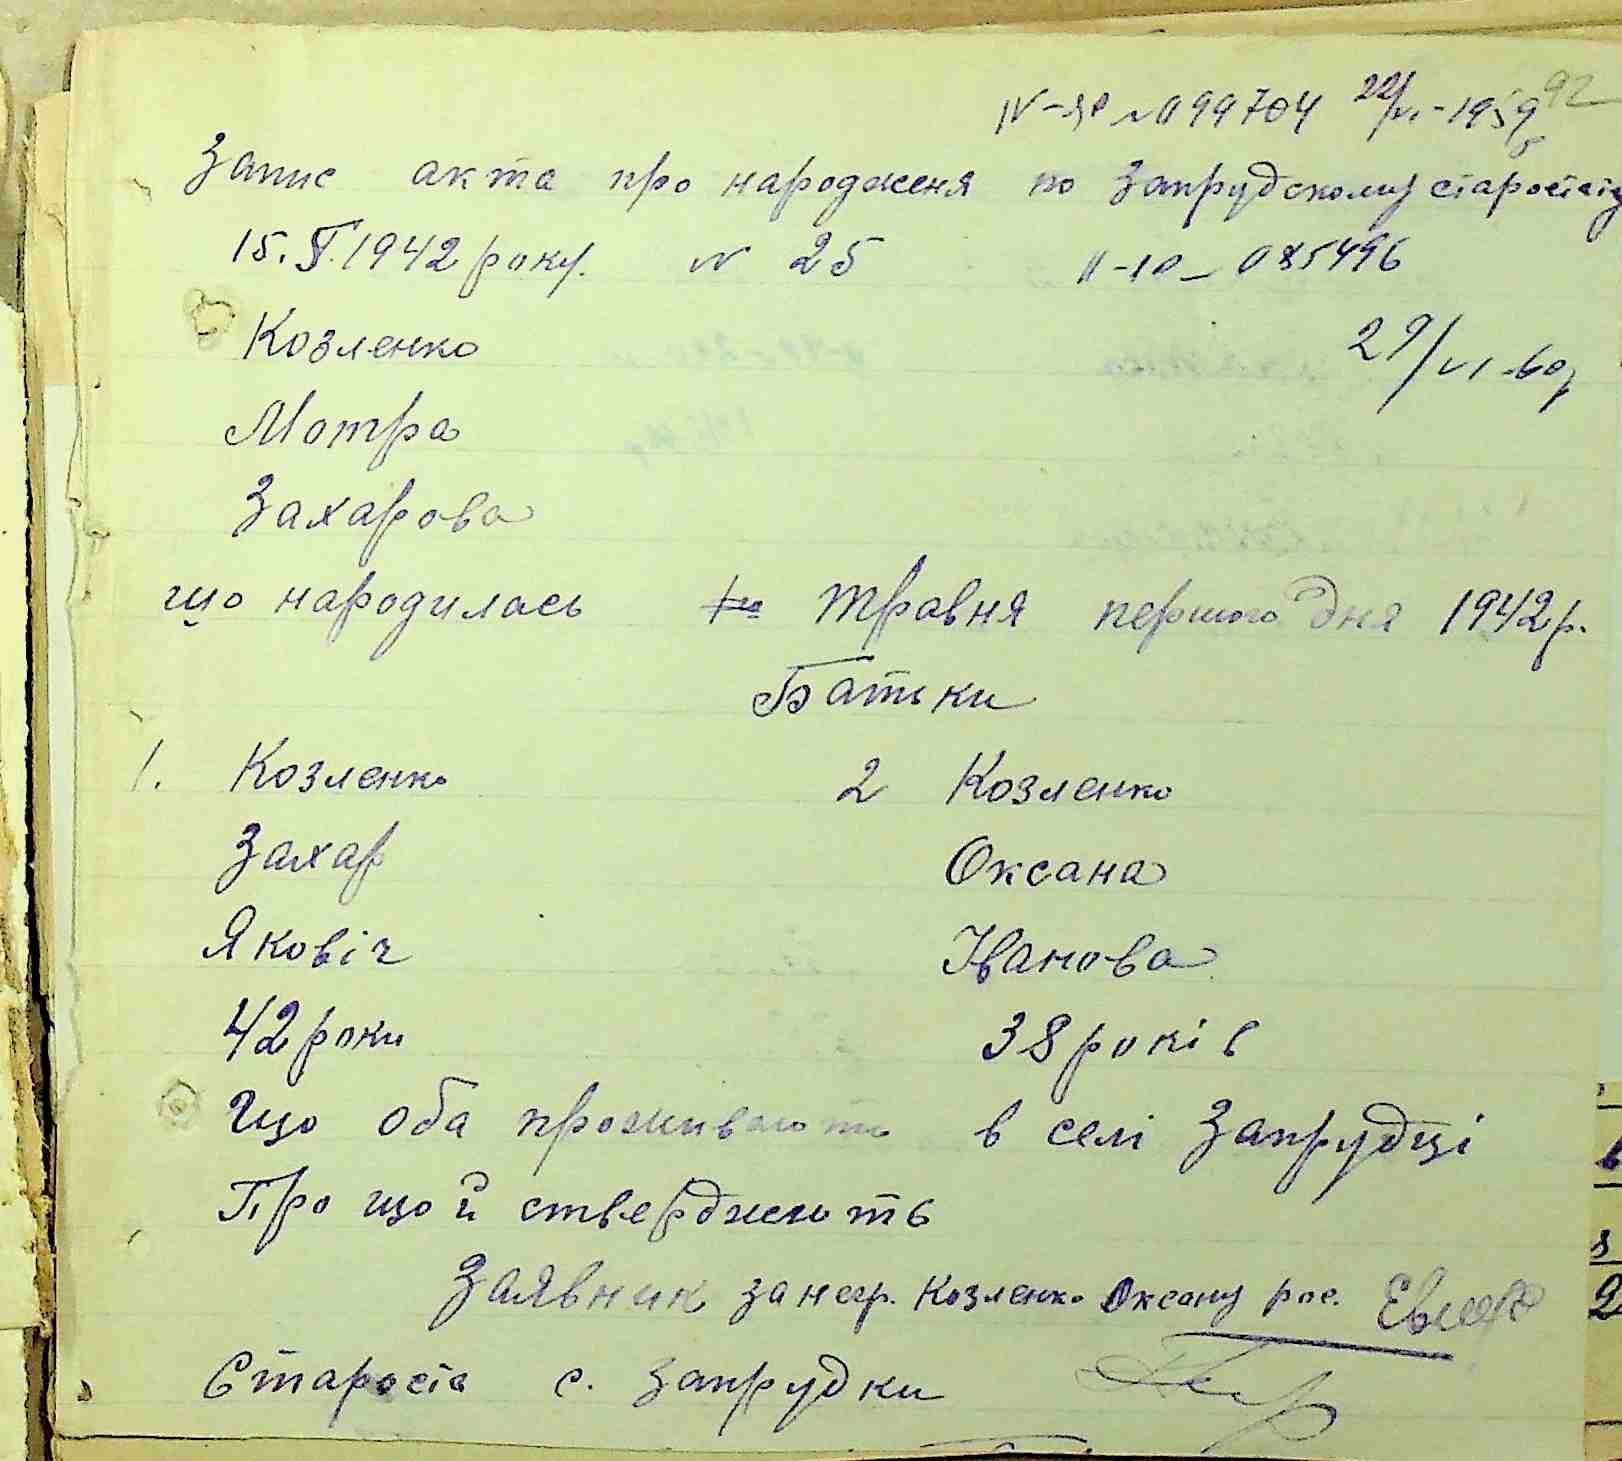 IV-ЯР №099704 22/VI-1959 92
Запис акта про народженя по Запрудскому старостату
15.V.1942 року. N 25 II-ЯР - 085496
29/VI-60р
Козленко
Мотра
Захарова
що народилась Травня першого дня 1942 р.
Батьки
1. Козленко 2 Козленко
Захар Оксана
Яковіч Іванова
42 роки 38 років
Що оба проживають в селі Запрудці
Про що й стверджують
Заявник за негр. Козленко Оксану рос.
Староста с. Запрудки